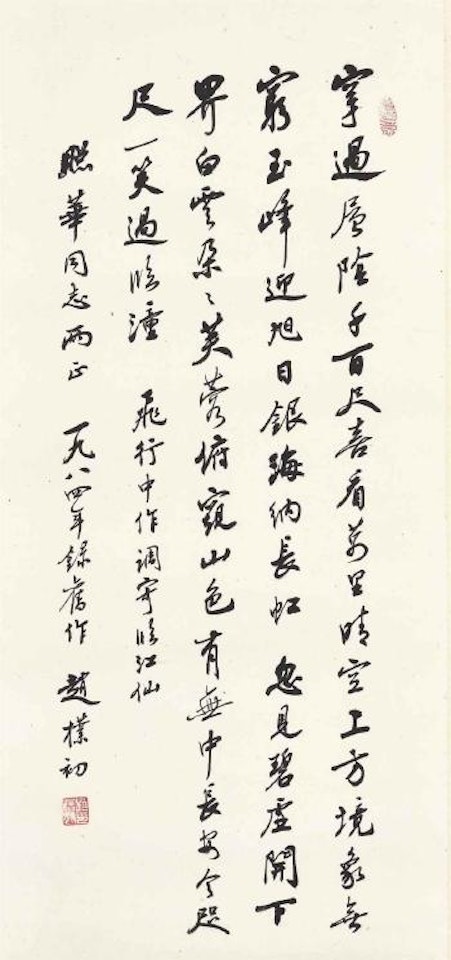 穿過層陰千百尺喜看萬里晴空上方境象無
窮玉峰迎旭日銀海納長虹 忽見碧虛開下
界白雲朵〻芙蓉俯窺山色有無中長安今咫
尺一笑過臨潼 飛行中作調寄臨江仙
華同志兩正 一九八四年錄舊作 趙樸初